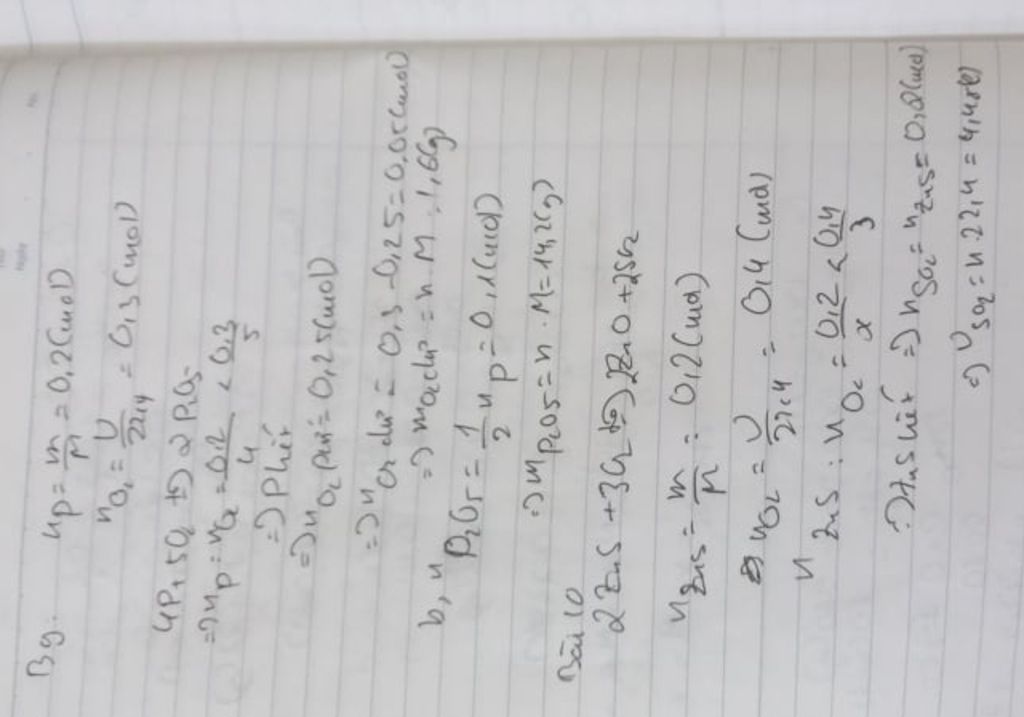 B9. nP = m/M = 0,2 (mol)
nO2 = V/22,4 = 0,3 (mol)
4P + 5O2 to→ 2P2O5
=> nP : nO2 = 0,2/4 < 0,3/5
=> P hết
=> nO2 pư = 0,25 (mol)
=> nO2 dư = 0,3 - 0,25 = 0,05 (mol)
=> mO2 dư = n . M = 1,6 (g)
b, nP2O5 = 1/2 nP = 0,1 (mol)
=> mP2O5 = n . M = 14,2 (g)
Bài 10
2ZnS + 3O2 to→ 2ZnO + 2SO2
nZnS = m/M = 0,2 (mol)
nO2 = V/22,4 = 0,4 (mol)
nZnS : nO2 = 0,2/2 < 0,4/3
=> ZnS hết => nSO2 = nZnS = 0,2 (mol)
=> VSO2 = n . 22,4 = 4,48 (l)